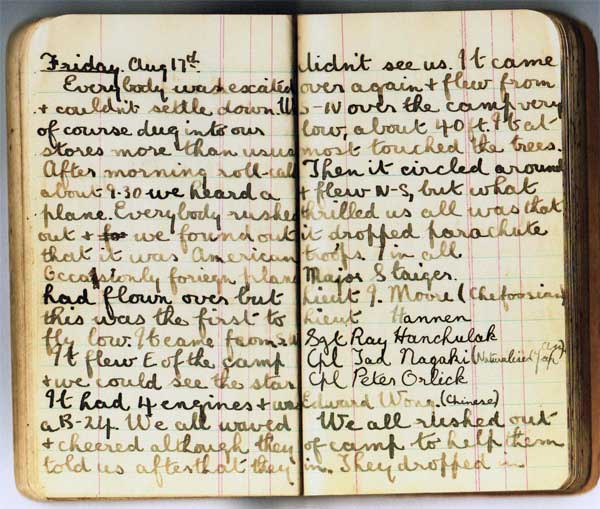 Friday. Aug 17th.
Everybody was exscited
& couldn't settle down. We
of course dug into our
stores more than usua
After morning roll-call
about 9.30 we heard a
plane. Everybody rushed
out & for we found out
that it was American
Occastonly foriegn plane
had flown over but
this was the first to
fly low. It came from
It flew E of the camp
& we could see the star
It had 4 engines & was
a B-24. We all waved
& cheered although they
told us after that they
didn't see us. It came
over again & flew from
over the camp very
low, about 40 ft. It al-
most touched the trees.
Then it circled around
& flew N-S, but what
thrilled us all was that
it dropped parachute
troops. 7 in all
Major Staiger.
Lieut J. Moore (Chefoosian)
Lieut Hannen
Sgt Ray Hanchulak
Cpl Tad Nagaki (Naturalised Jap an)
Cpl Peter Orlick
Edward Wong. (Chinese)
We all rushed out
of camp to help them
in. They dropped in